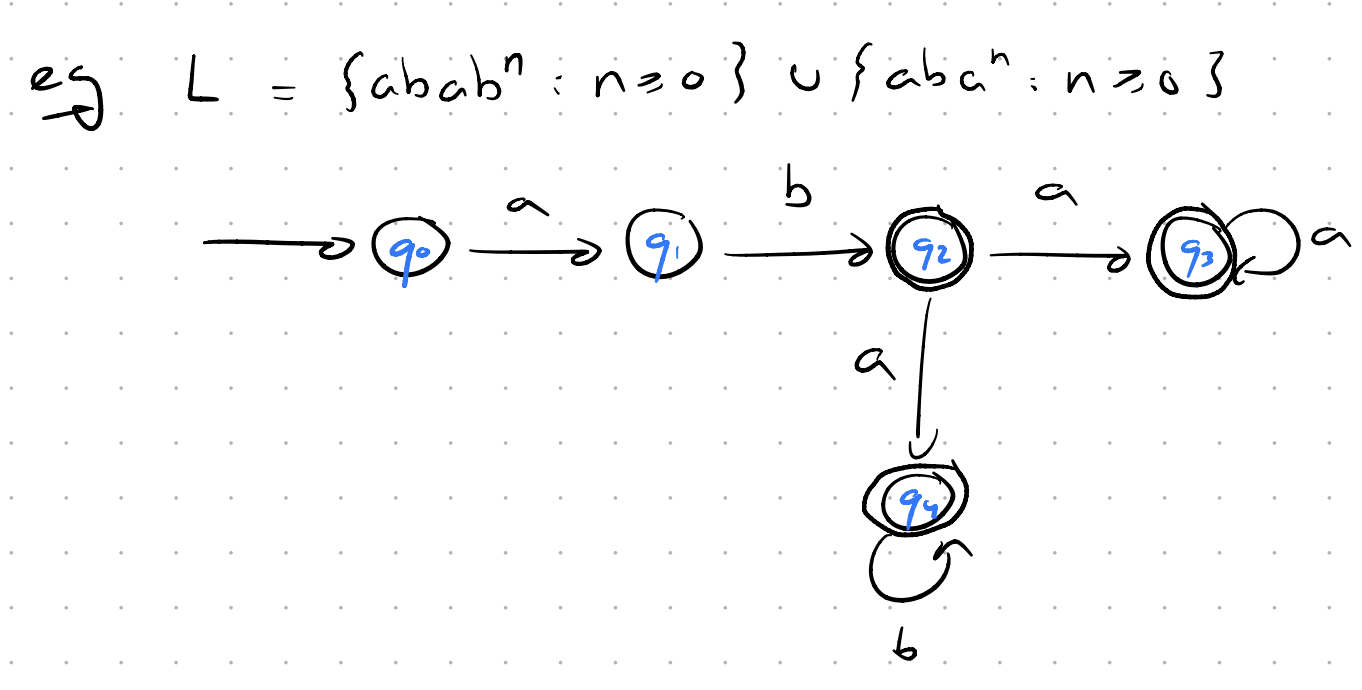 eg L = {abab^n : n ≥ 0} ∪ {aba^n : n ≥ 0}
a b a
q0 q1 q2 q3 a
a
q4
b